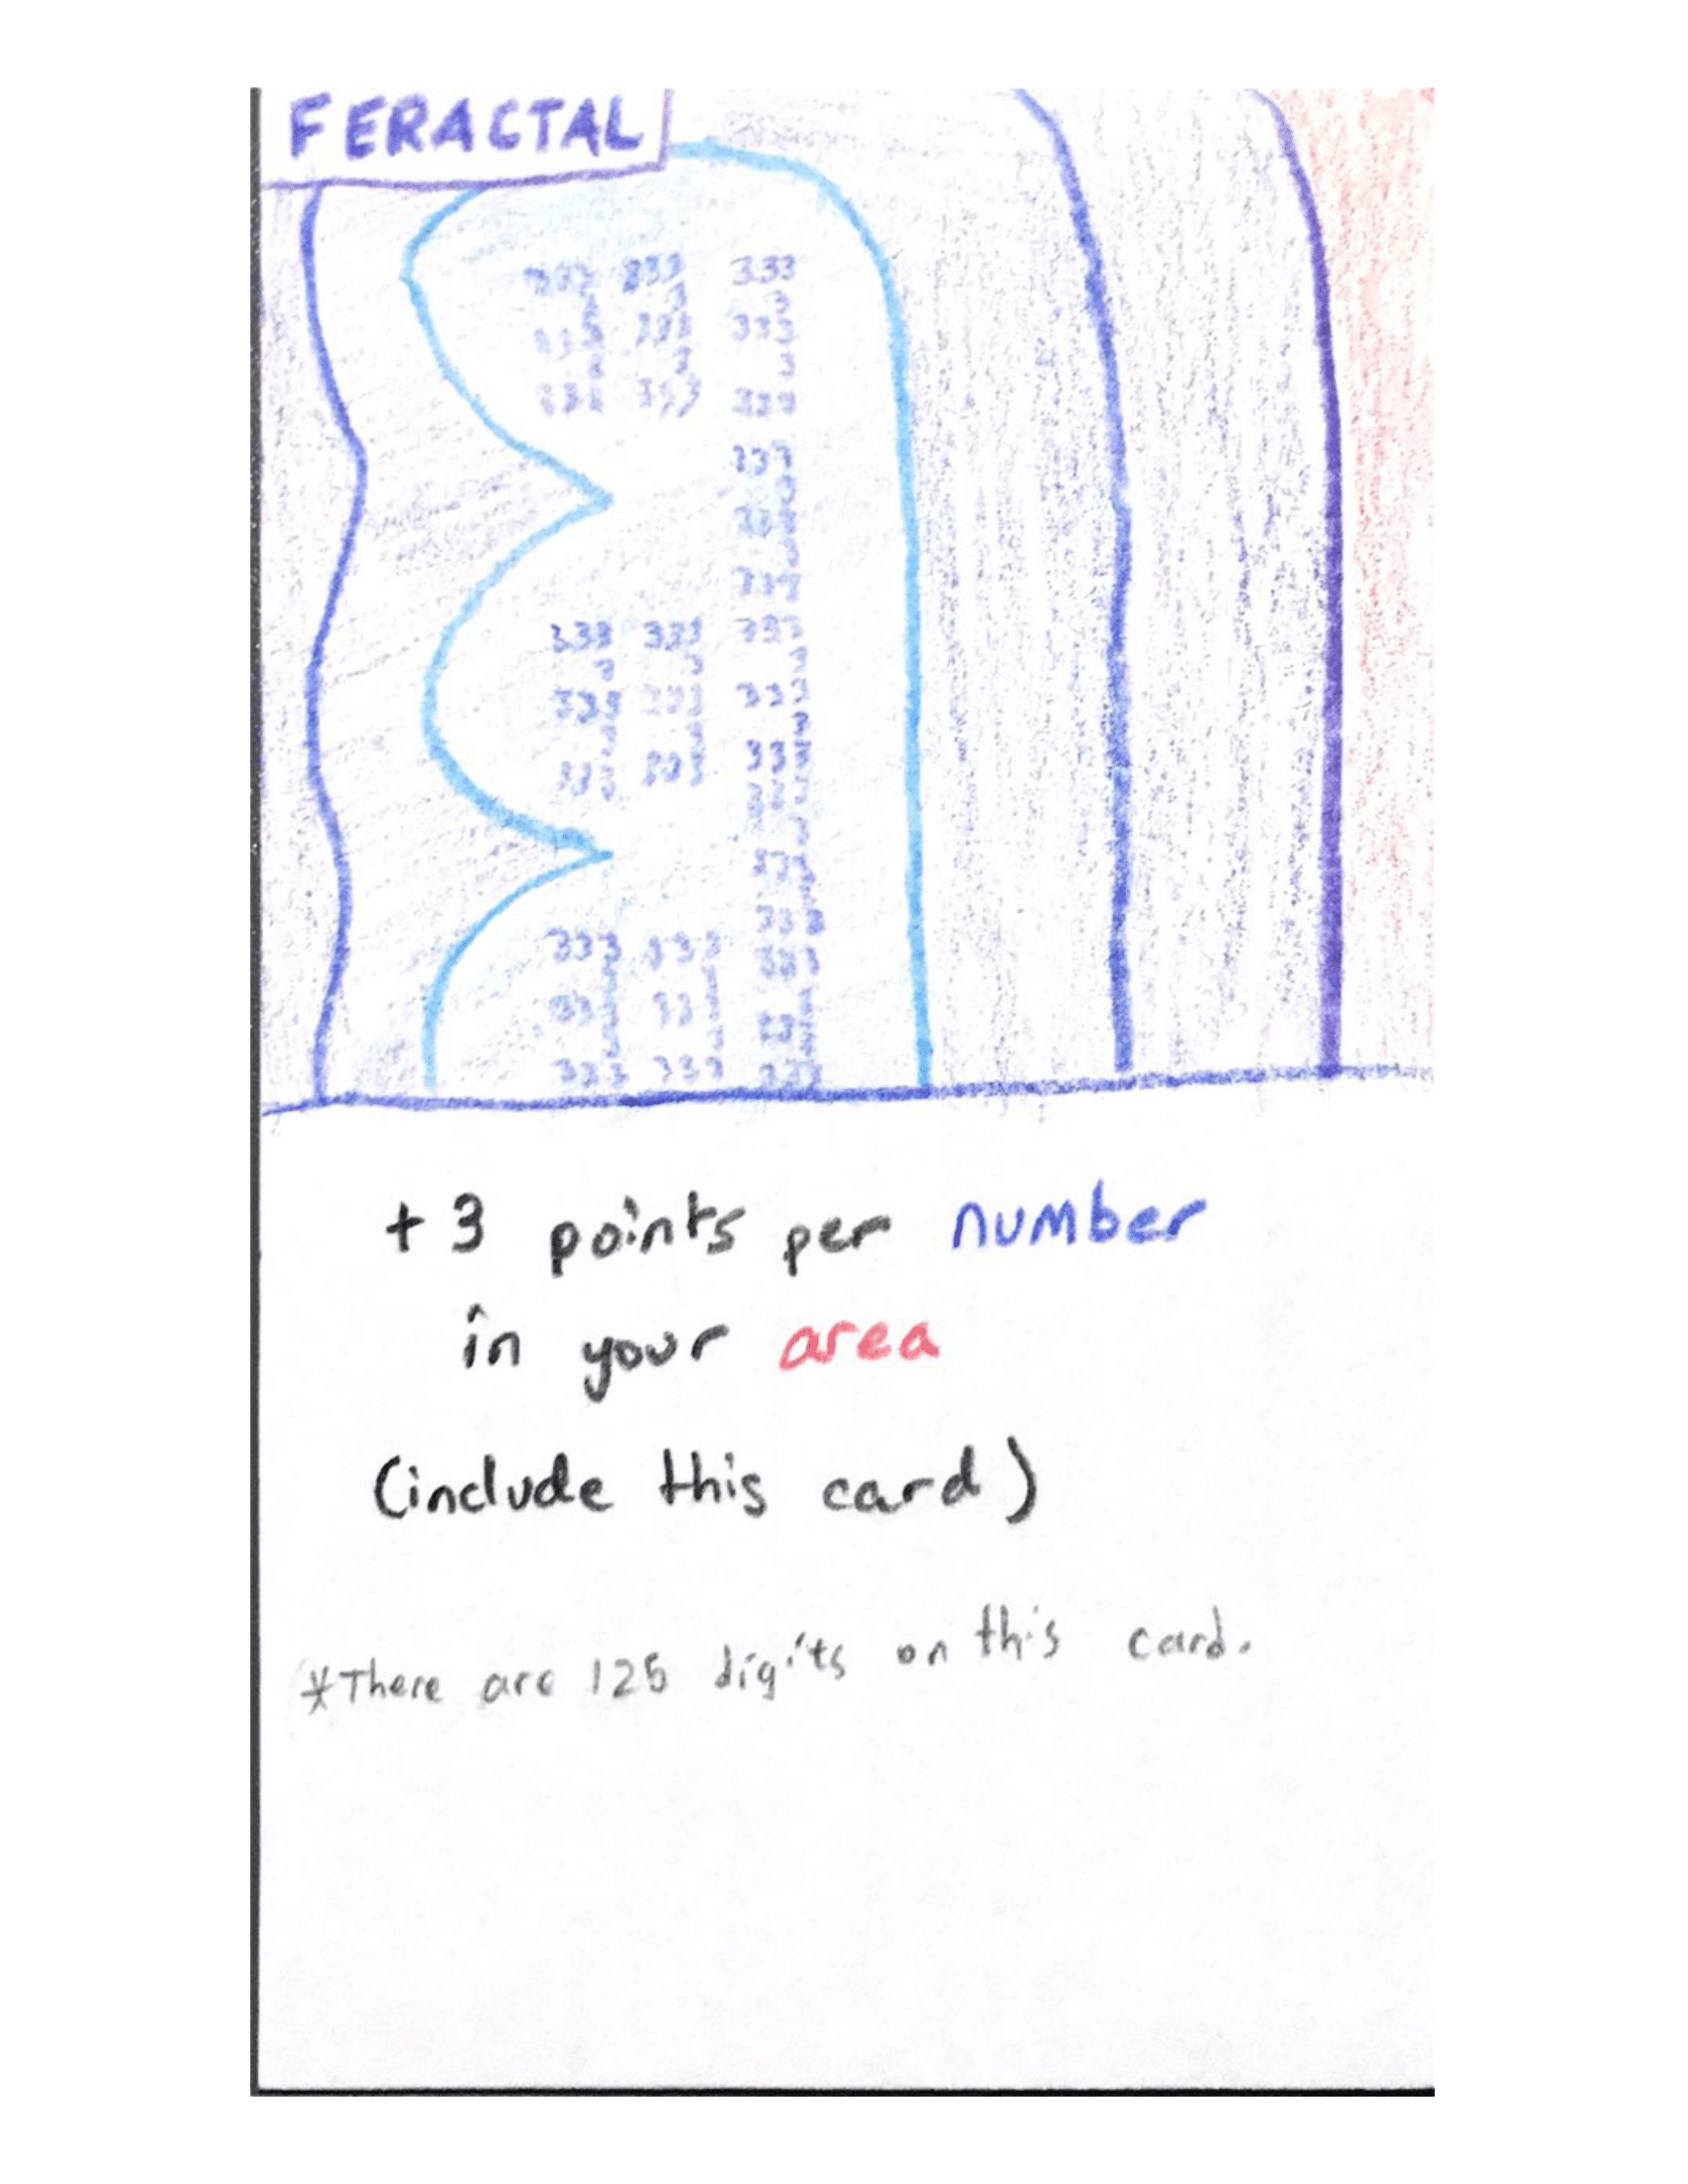 FERACTAL
333 333 333
3 3 3
333 333 333
3 3 3
333 333 333
333
3
333
3
333
333 333 333
3 3 3
333 333 333
3 3 3
333 333 333
333
3
333
3
333
333 333 333
3 3 3
333 333 333
3 3 3
333 333 333
+3 points per number
in your area
(include this card)
*There are 125 digits on this card.